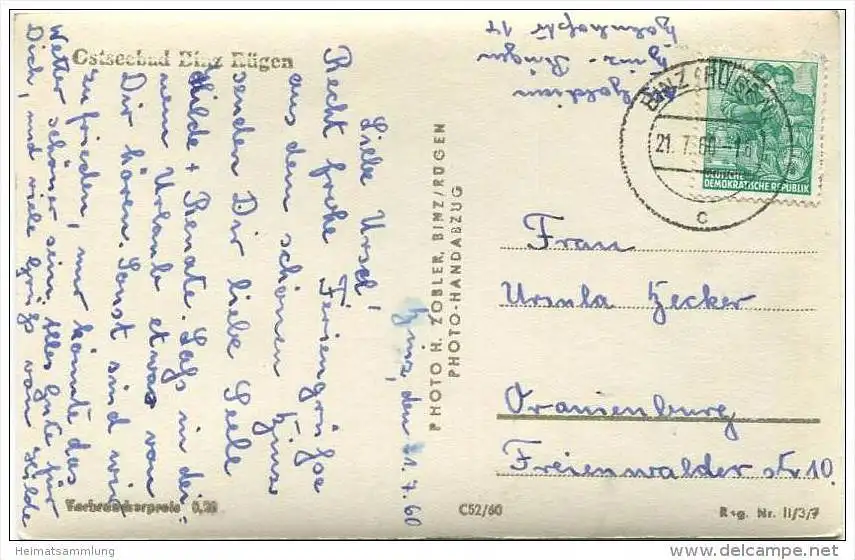 Ostseebad Binz Rügen
Binz, den 21.7.60
Liebe Ursel!
Recht frohe Feriengrüße
aus dem schönen Binz
senden Dir liebe Seele
Hilde + Renate. Laß in dei-
nem Urlaub etwas von
Dir hören. Sonst sind wir
zufrieden, nur könnte das
Wetter schöner sein. Alles Gute für
Dich, und viele Grüße von Hilde
Verbraucherpreis 0,20
PHOTO H. ZOBLER, BINZ/RÜGEN
PHOTO-HANDABZUG
Binz - Rügen
Bahnhofstr 17
BINZ (RÜGEN)
21. 7. 60
c
DEUTSCHE
DEMOKRATISCHE REPUBLIK
Frau
Ursula Hecker
Oranienburg
Freienwalder Str 10.
C52/60
Reg. Nr. II/3/7
Heimatsammlung
delcampe.net